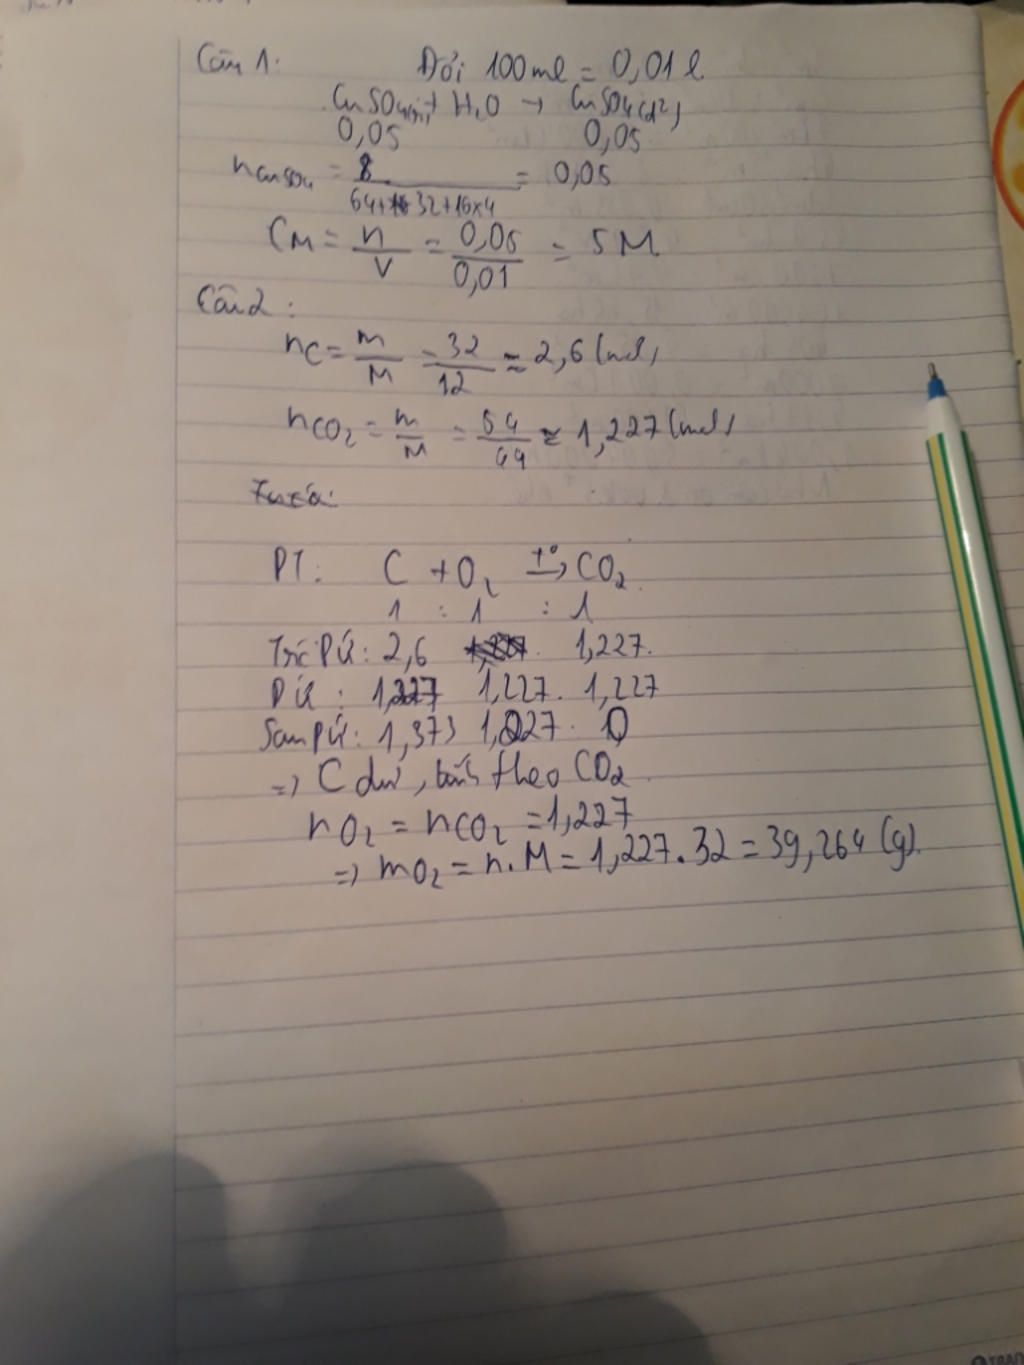 Câu 1: Đổi 100ml = 0,01 l
CuSO4(r) + H2O → CuSO4(d²)
0,05 0,05
nCuSO4 = 8 / 64+32+16x4 = 0,05
CM = n/V = 0,05/0,01 = 5M
Câu 2:
nC = m/M = 32/12 ≈ 2,6 (mol)
nCO2 = m/M = 54/44 ≈ 1,227 (mol)
PT: C + O2 t°→ CO2
1 : 1 : 1
Trc PỨ: 2,6 1,227.
PỨ : 1,227 1,227. 1,227
Sau PỨ: 1,373 1,027. 0
=> C dư, tính theo CO2
nO2 = nCO2 = 1,227
=> mO2 = n.M = 1,227.32 = 39,264 (g).